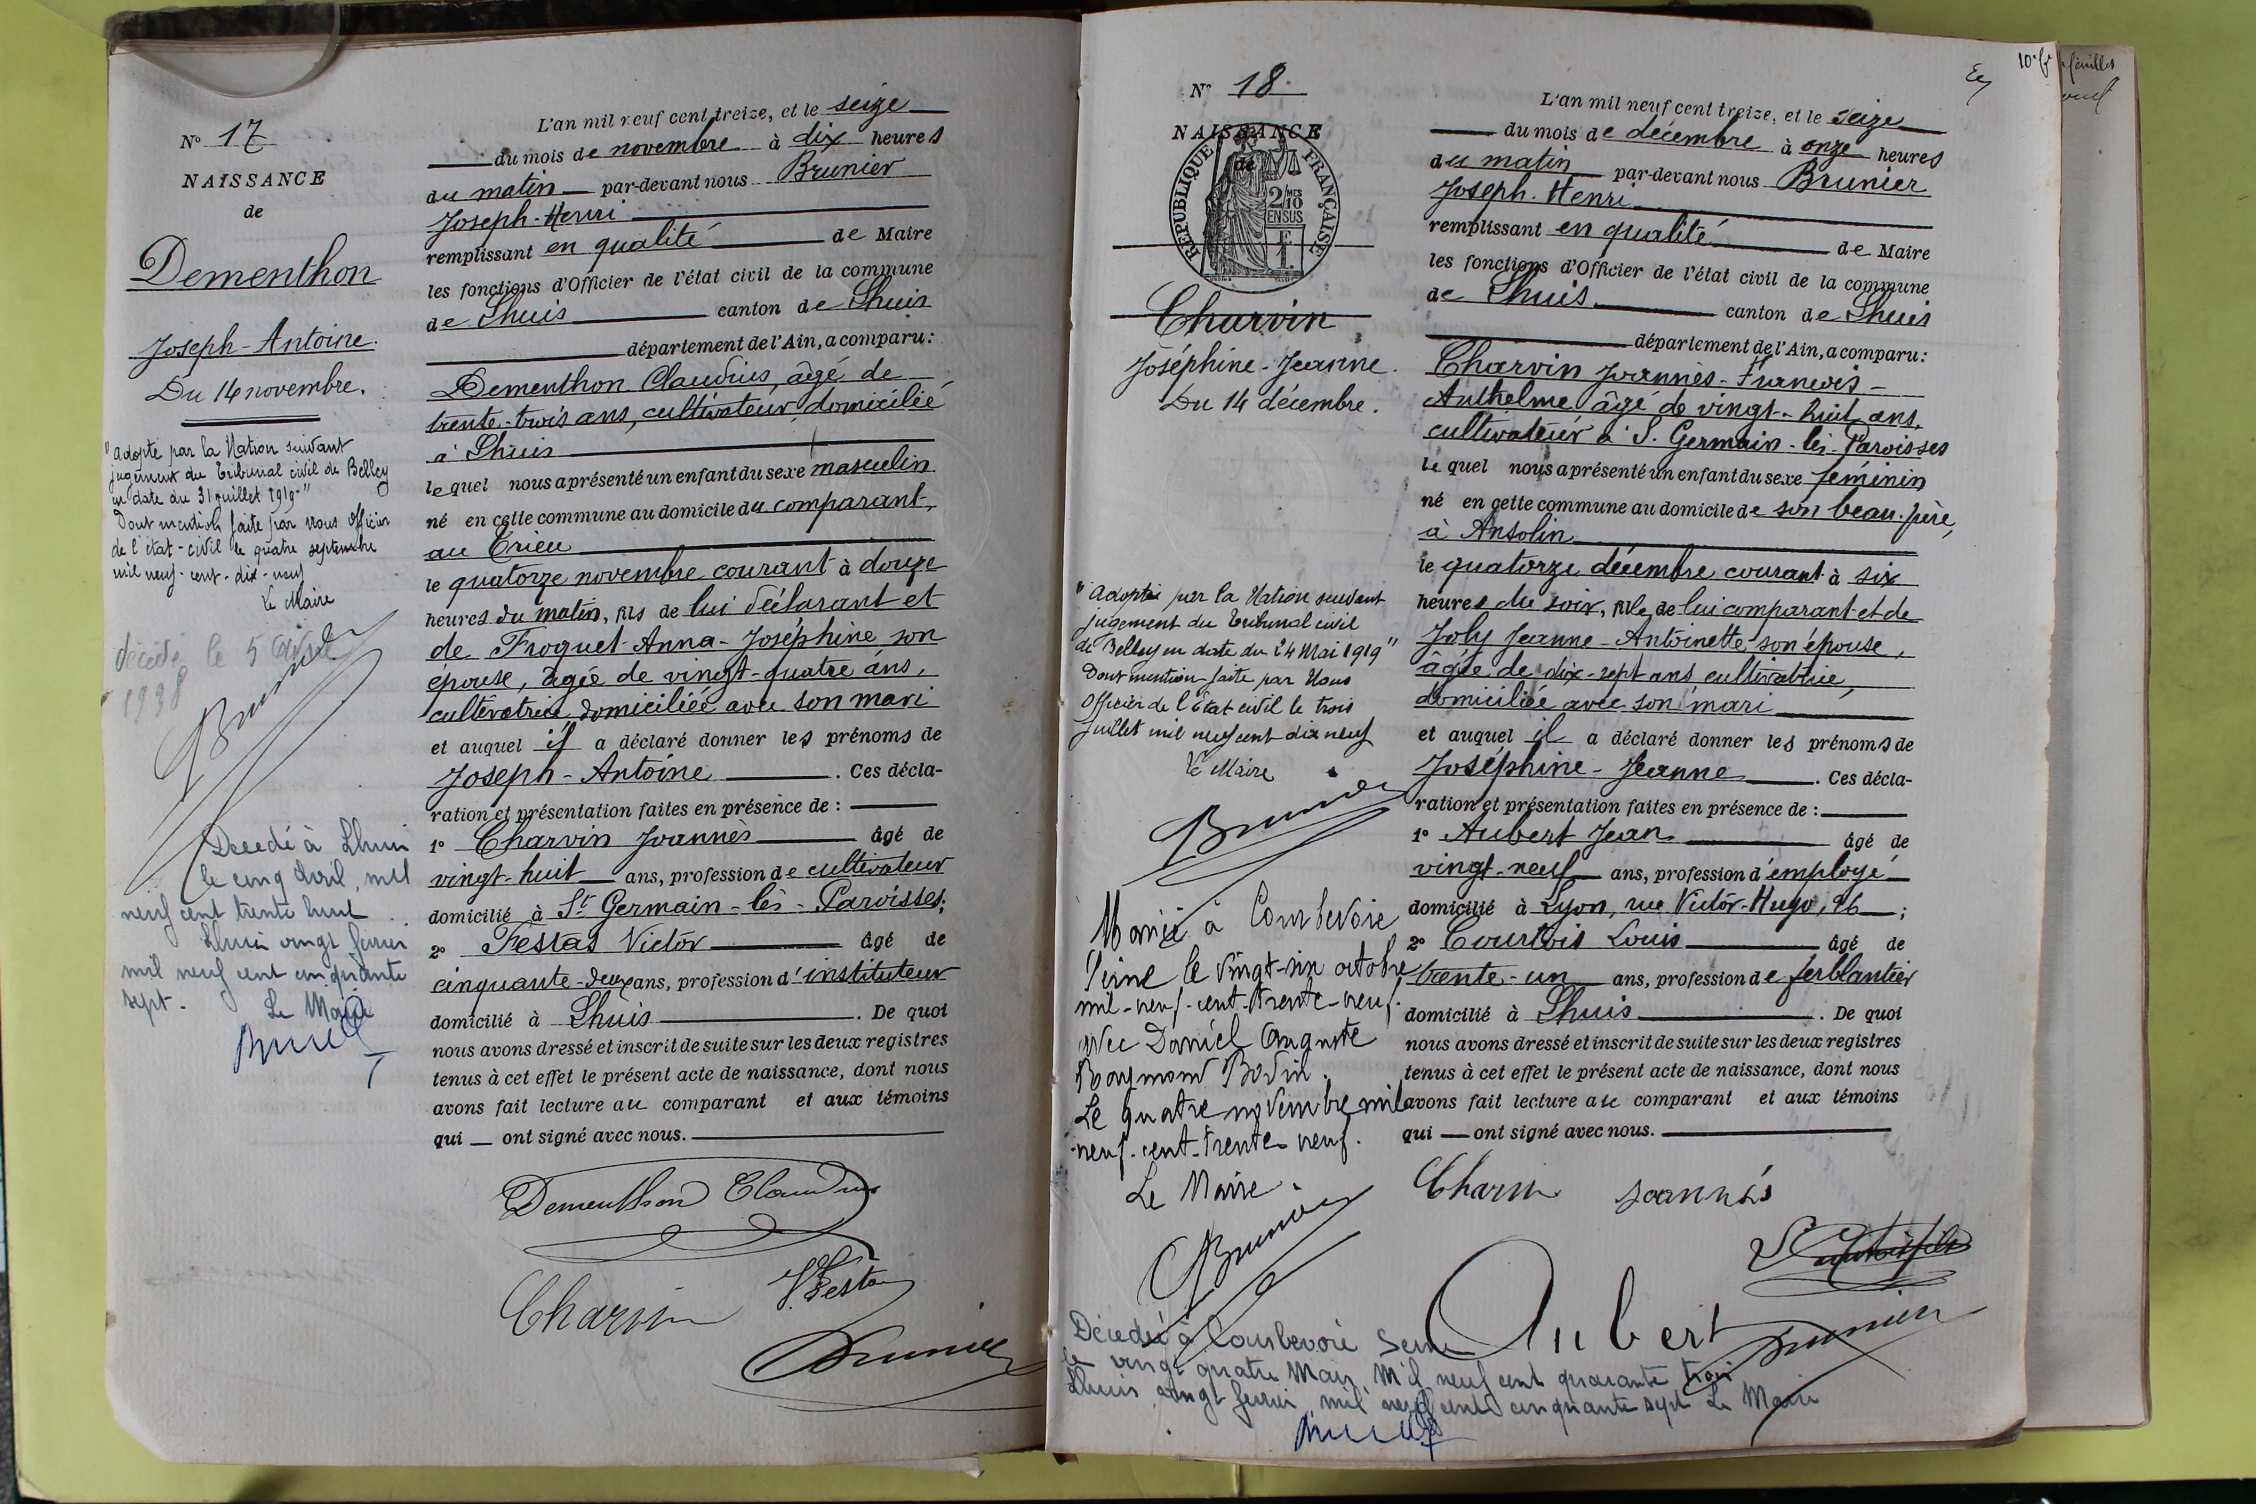 N° 17
NAISSANCE
de
Dementhon
Joseph-Antoine.
Du 14 novembre.
"adopté par la Nation suivant
jugement du Tribunal civil de Belley
en date du 31 juillet 1919"
Dont mention faite par nous officier
de l'état-civil le quatre septembre
mil neuf-cent-dix-neuf
Le Maire
décédé le 5 avril
1938
Brunier
Décédé à Lhuis
le cinq avril, mil
neuf cent trente huit
Lhuis vingt février
mil neuf cent cinquante
sept. Le Maire
L'an mil neuf cent treize, et le seize
du mois de novembre à dix heures
du matin par-devant nous Brunier
Joseph-Henri
remplissant en qualité de Maire
les fonctions d'Officier de l'état civil de la commune
de Lhuis canton de Lhuis
département de l'Ain, a comparu:
Dementhon Claudius, âgé de
trente-trois ans, cultivateur domicilié
à Lhuis
lequel nous a présenté un enfant du sexe masculin
né en cette commune au domicile du comparant,
au Crieu
le quatorze novembre courant à douze
heures du matin, fils de lui déclarant et
de Froquet Anna-Joséphine son
épouse, âgée de vingt-quatre ans,
cultivatrice domiciliée avec son mari
et auquel il a déclaré donner les prénoms de
Joseph-Antoine. Ces décla-
ration et présentation faites en présence de :
1° Charvin Joannès âgé de
vingt-huit ans, profession de cultivateur
domicilié à St Germain-lès-Paroisses;
2° Festas Victor âgé de
cinquante-deux ans, profession d'instituteur
domicilié à Lhuis. De quoi
nous avons dressé et inscrit de suite sur les deux registres
tenus à cet effet le présent acte de naissance, dont nous
avons fait lecture au comparant et aux témoins
qui — ont signé avec nous.
Dementhon Claudius
Charvin V. Festas
Brunier
N° 18
NAISSANCE
de
RÉPUBLIQUE FRANÇAISE
2/10 EN SUS
Charvin
Joséphine-Jeanne.
Du 14 décembre.
"Adoptée par la Nation suivant
jugement du Tribunal civil
de Belley en date du 24 Mai 1919"
Dont mention faite par Nous
Officier de l'État civil le trois
Juillet mil neuf cent dix neuf
Le Maire
Brunier
Mariée à Courbevoie
Seine le vingt-six octobre
mil-neuf-cent-trente-neuf.
avec Daniel Auguste
Raymond Bodin.
Le quatre novembre mil
neuf-cent-trente neuf.
Le Maire.
Brunier
Décédée à Courbevoie Seine
le vingt quatre Mars Mil neuf cent quarante trois
Lhuis vingt février mil neuf cent cinquante sept Le Maire
10e f
feuillet
L'an mil neuf cent treize, et le seize
du mois de décembre à onze heures
du matin par-devant nous Brunier
Joseph-Henri
remplissant en qualité de Maire
les fonctions d'Officier de l'état civil de la commune
de Lhuis canton de Lhuis
département de l'Ain, a comparu:
Charvin Joannès-François-
Anthelme âgé de vingt-huit ans,
cultivateur à S. Germain-les-Paroisses
lequel nous a présenté un enfant du sexe féminin
né en cette commune au domicile de son beau-père,
à Ansolin
le quatorze décembre courant à six
heures du soir, fille de lui comparant et de
Joly Jeanne-Antoinette son épouse,
âgée de dix-sept ans cultivatrice,
domiciliée avec son mari
et auquel il a déclaré donner les prénoms de
Joséphine-Jeanne. Ces décla-
ration et présentation faites en présence de :
1° Aubert Jean âgé de
vingt-neuf ans, profession d'employé
domicilié à Lyon, rue Victor-Hugo, 26;
2° Courtois Louis âgé de
trente-un ans, profession de ferblantier
domicilié à Lhuis. De quoi
nous avons dressé et inscrit de suite sur les deux registres
tenus à cet effet le présent acte de naissance, dont nous
avons fait lecture au comparant et aux témoins
qui — ont signé avec nous.
Charvin Joannès
Aubert
Brunier